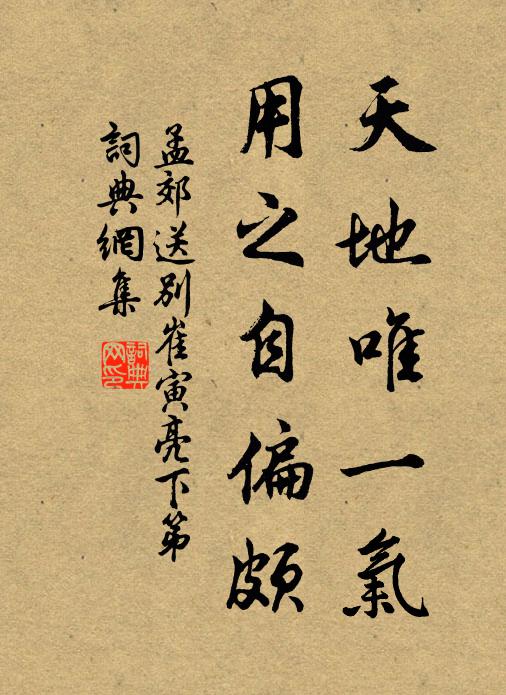 天地唯一氣
用之自偏頗
孟郊送別崔寅亮下第
詞典網集
詞典网印